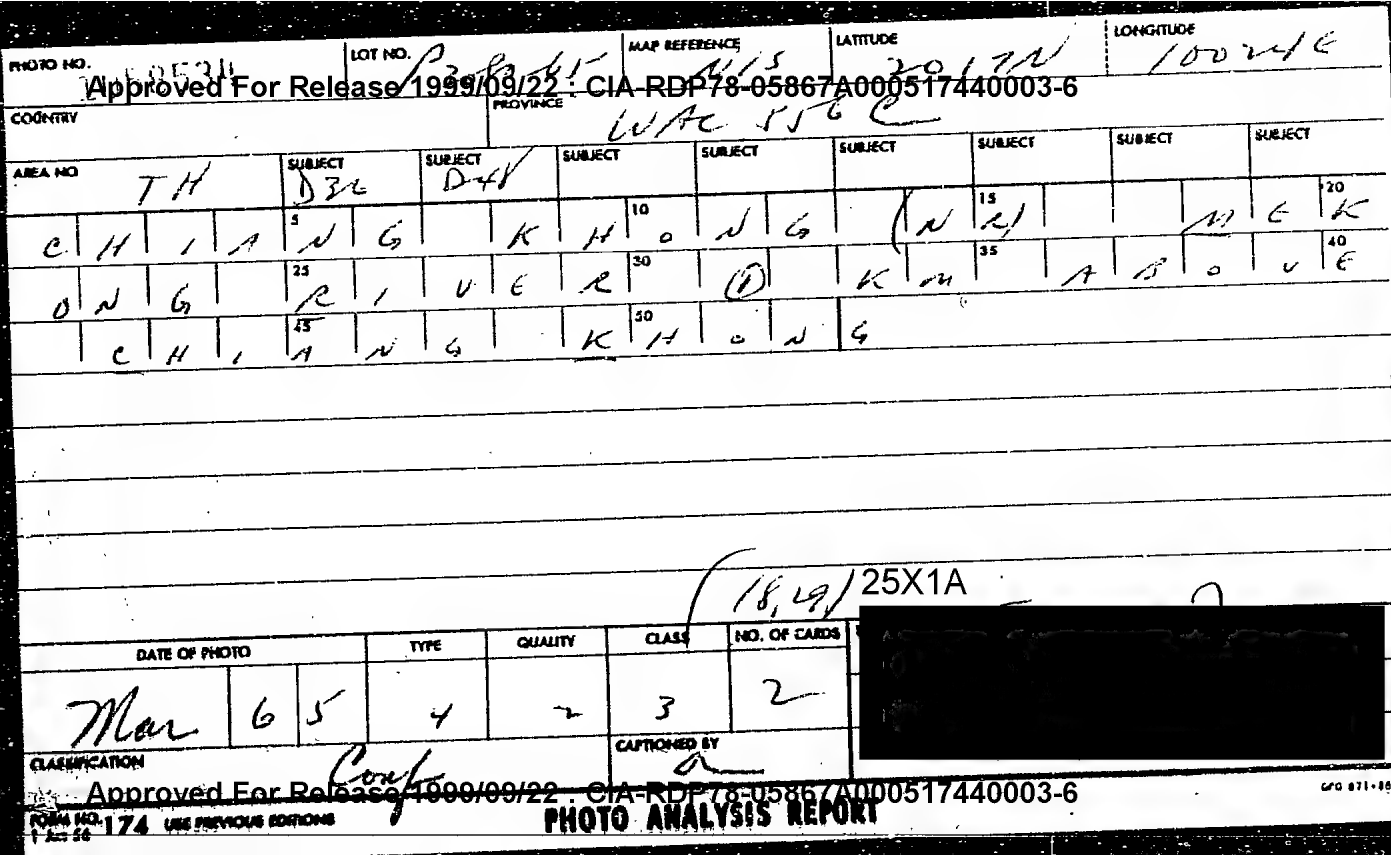 PHOTO NO. LOT NO. MAP REFERENCE N/S LATITUDE 2017N LONGITUDE 10024E
Approved For Release 1999/09/22 : CIA-RDP78-05867A000517440003-6
COUNTRY PROVINCE WAC 556 C
AREA NO TH SUBJECT D36 SUBJECT D48 SUBJECT SUBJECT SUBJECT SUBJECT SUBJECT SUBJECT
5 10 15 20
CHIANG KHONG (NR) MEK
25 30 35 40
ONG RIVER ① KM ABOVE
45 50
CHIANG KHONG
(18,29) 25X1A
DATE OF PHOTO TYPE QUALITY CLASS NO. OF CARDS
Mar 65 4 2 3 2
CLASSIFICATION Conf CAPTIONED BY
Approved For Release 1999/09/22 : CIA-RDP78-05867A000517440003-6
FORM NO. 174 USE PREVIOUS EDITIONS PHOTO ANALYSIS REPORT